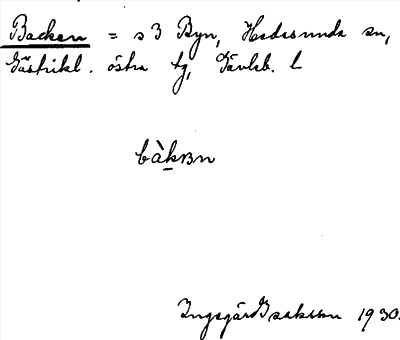 Backen = s 3 Byn, Hedesunda sn,
Gästrikl. östra tg, Gävleb. l
bàkɐn
Ingegärd Isaksson 1930.